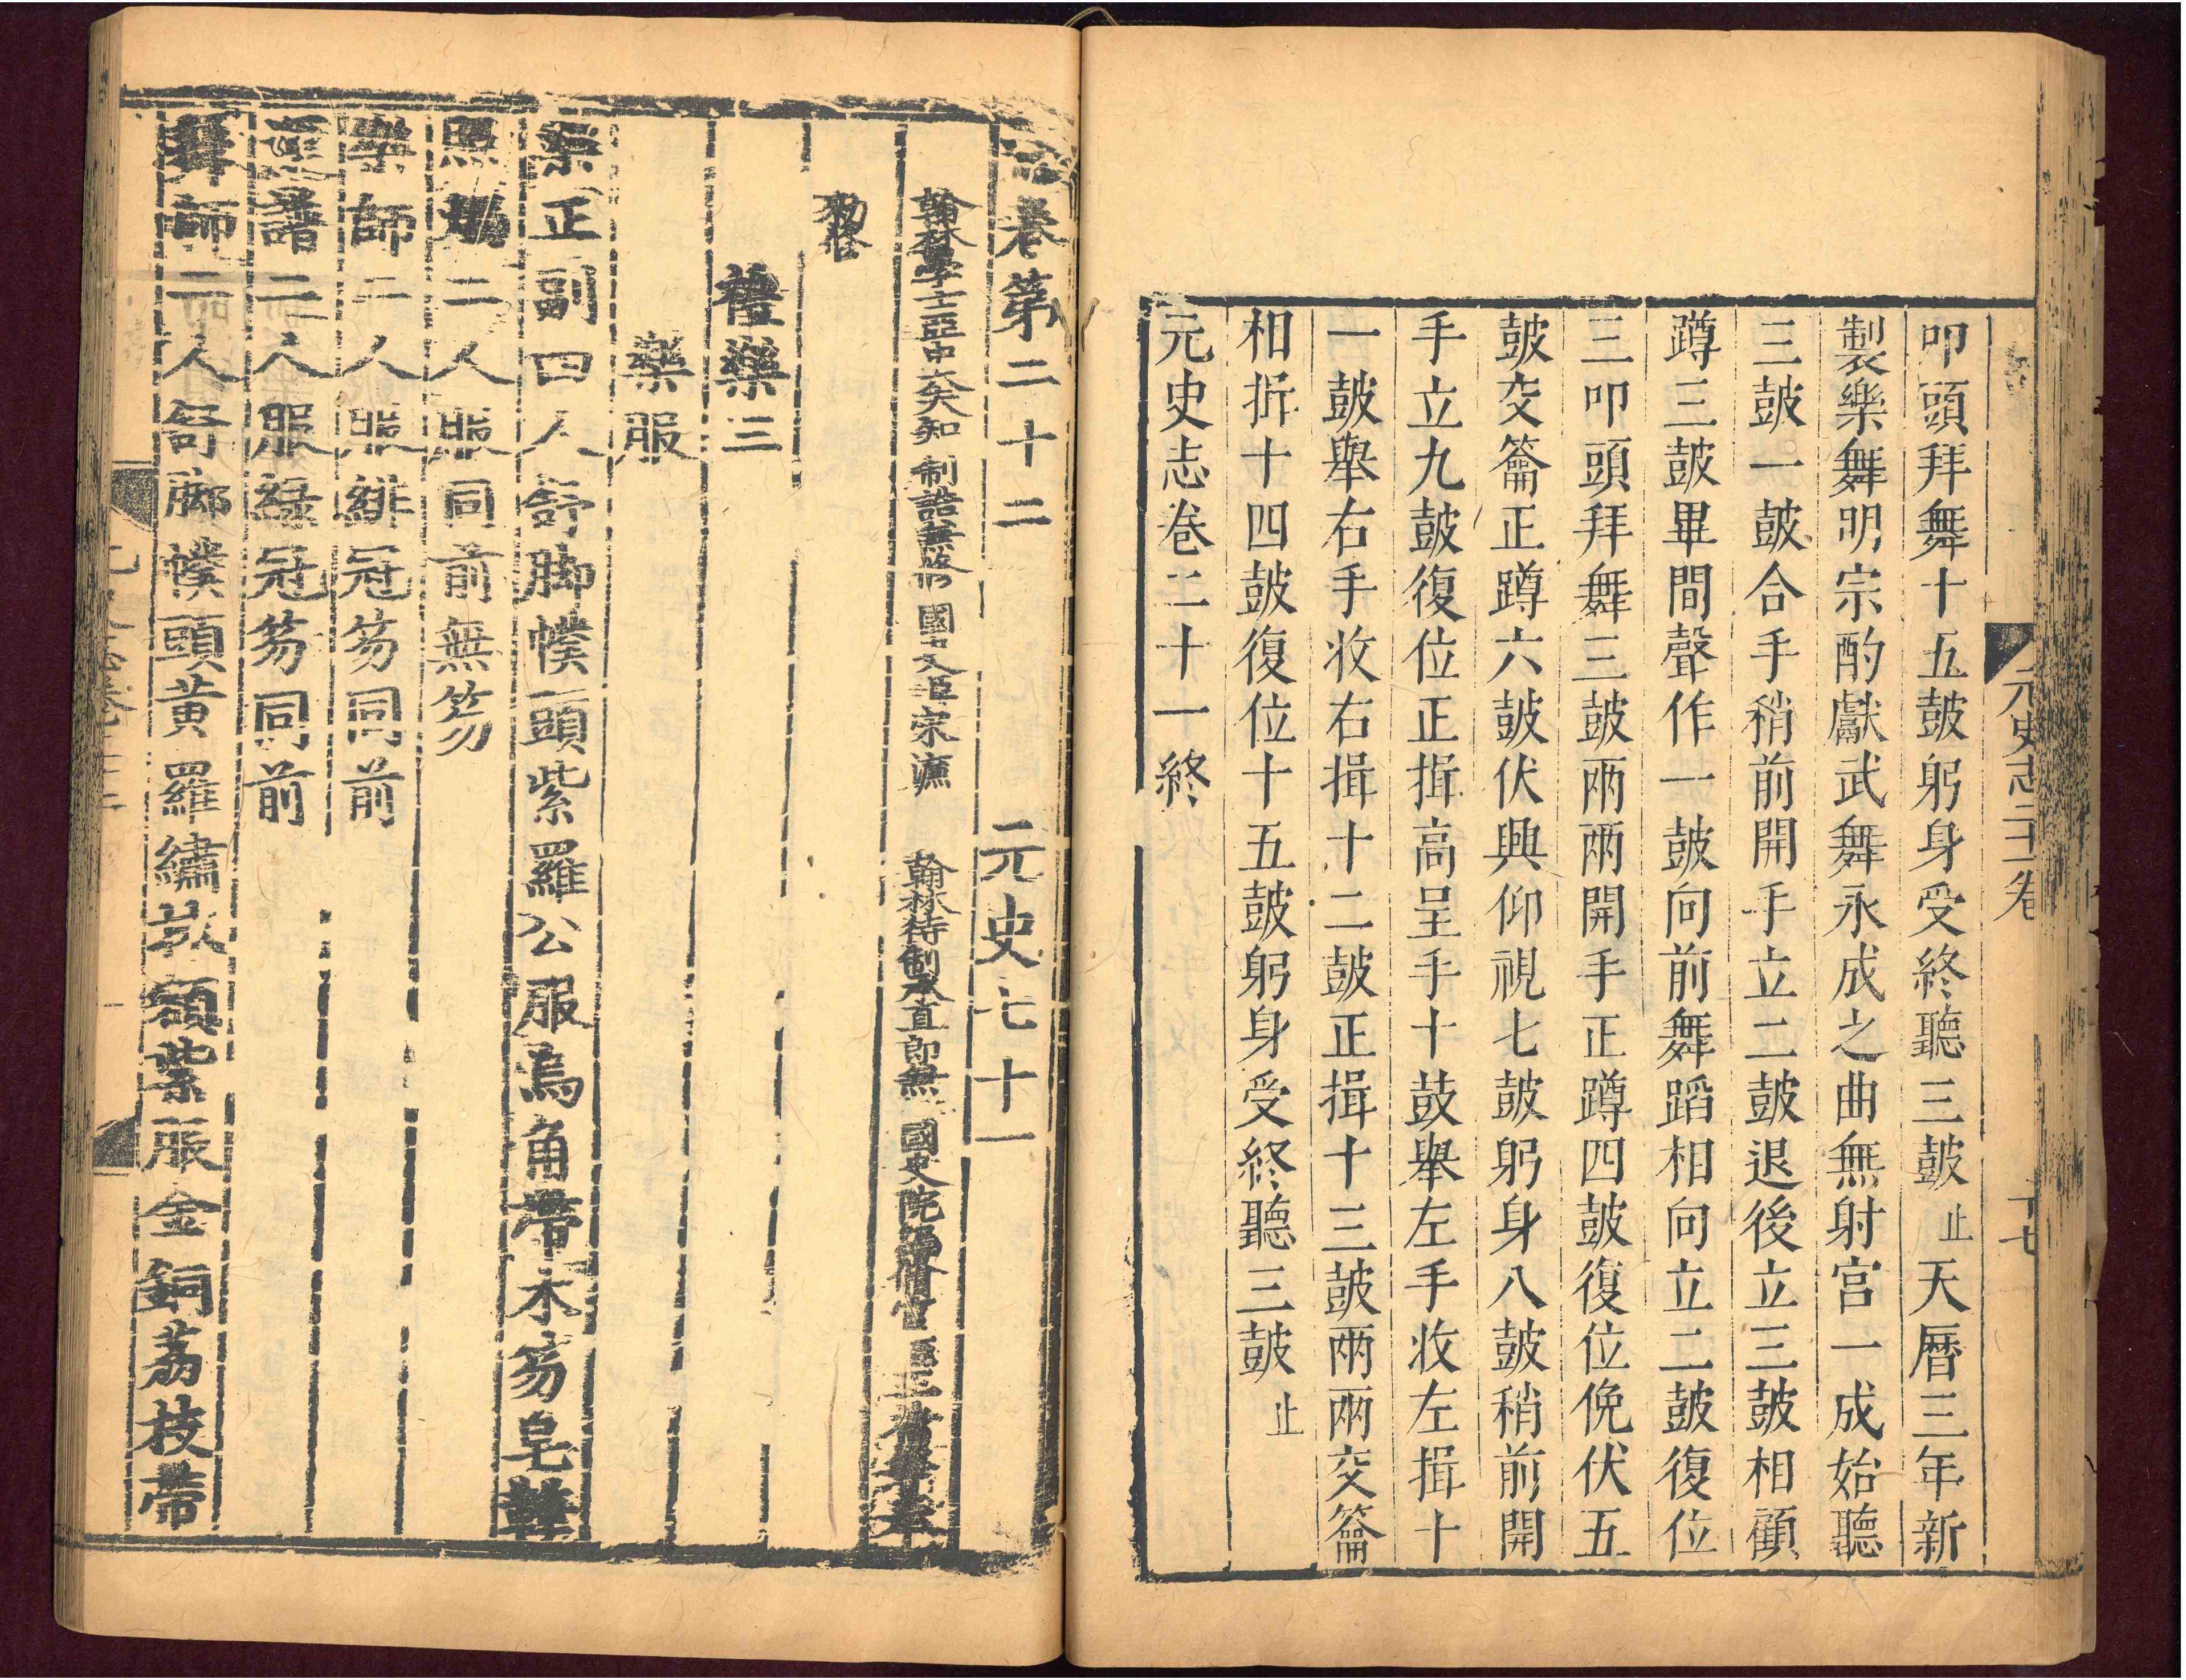 元史志二十一卷
十七
叩頭拜舞十五鼓躬身受終聽三鼓止天曆三年新
製樂舞明宗酌獻武舞永成之曲無射宮一成始聽
三鼓一鼓合手稍前開手立二鼓退後立三鼓相顧
蹲三鼓畢間聲作一鼓向前舞蹈相向立二鼓復位
三叩頭拜舞三鼓兩兩開手正蹲四鼓復位俛伏五
鼓交籥正蹲六鼓伏興仰視七鼓躬身八鼓稍前開
手立九鼓復位正揖高呈手十鼓舉左手收左揖十
一鼓舉右手收右揖十二鼓正揖十三鼓兩兩交籥
相揖十四鼓復位十五鼓躬身受終聽三鼓止
元史志卷二十一終
志卷第二十二 元史七十一
翰林學士亞中大夫知 制誥兼修 國史臣宋濂 翰林待制承直郎兼 國史院編修官臣王禕等奉
勑修
禮樂三
樂服
樂正副四人舒脚幞頭紫羅公服烏角帶木笏皂鞾
照燭二人服同前無笏
樂師二人服緋冠笏同前
運譜二人服綠冠笏同前
舞師二人舒脚幞頭黃羅繡抹額紫服金銅荔枝帶